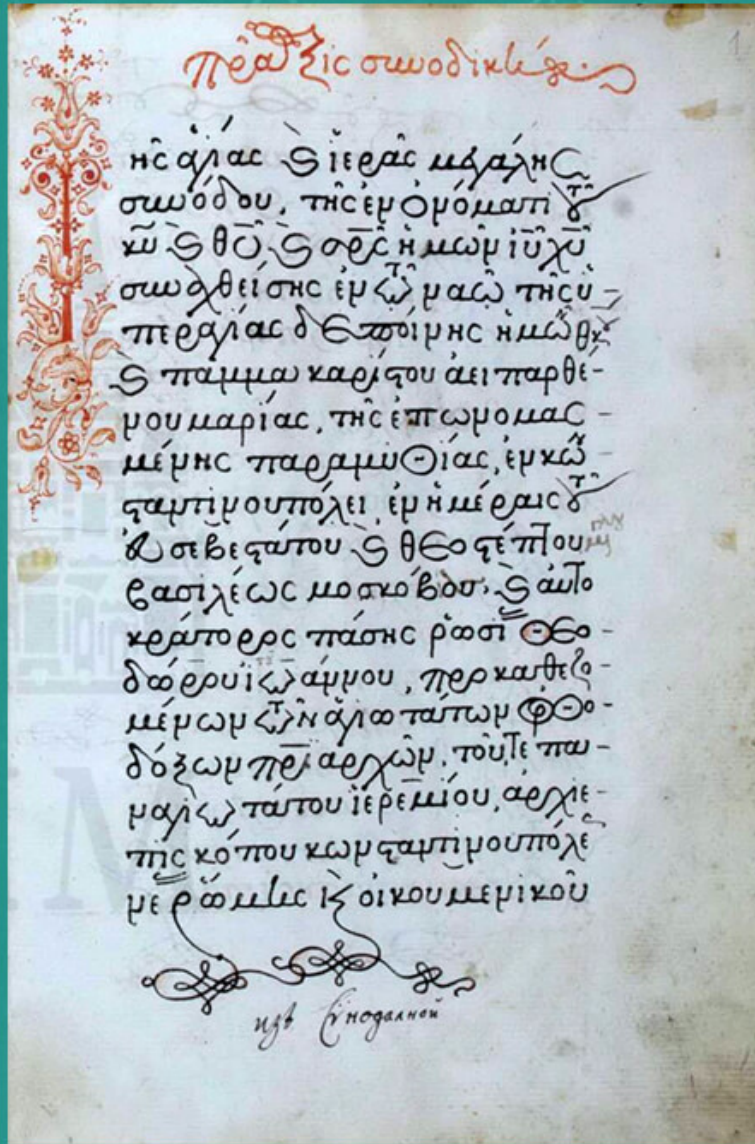 πρᾶξις συνοδικὴ
1
τῆς ἁγίας καὶ ἱερᾶς μεγάλης
συνόδου, τῆς ἐν ὀνόματι τοῦ
κυ̅ καὶ θυ̅ καὶ σρ̅ς ἡμῶν ιυ̅ χυ̅
συναχθείσης ἐν τῷ ναῷ τῆς ὑ-
περαγίας δεσποίνης ἡμῶν θκου
καὶ παμμακαρίστου ἀειπαρθέ-
νου μαρίας, τῆς ἐπωνομασ-
μένης παραμυθίας, ἐν κων
σταντινουπόλει ἐν ἡμέραις τοῦ
εὐσεβεστάτου καὶ θεοστέπτου
βασιλέως μοσκόβου, καὶ αὐτο
κράτορος πάσης ῥωσί Θεο-
δώρου ἰωάννου, προκαθεζο
μένων τῶν ἁγιωτάτων ὀρθο-
δόξων πρι̅αρχῶν, τοῦ, τε πα-
ναγιωτάτου ἱερεμίου, ἀρχιε-
πισκόπου κωνσταντινουπόλε
νέ ῥώμης κ οἰκουμενικοῦ
изъ Сѵнодалной